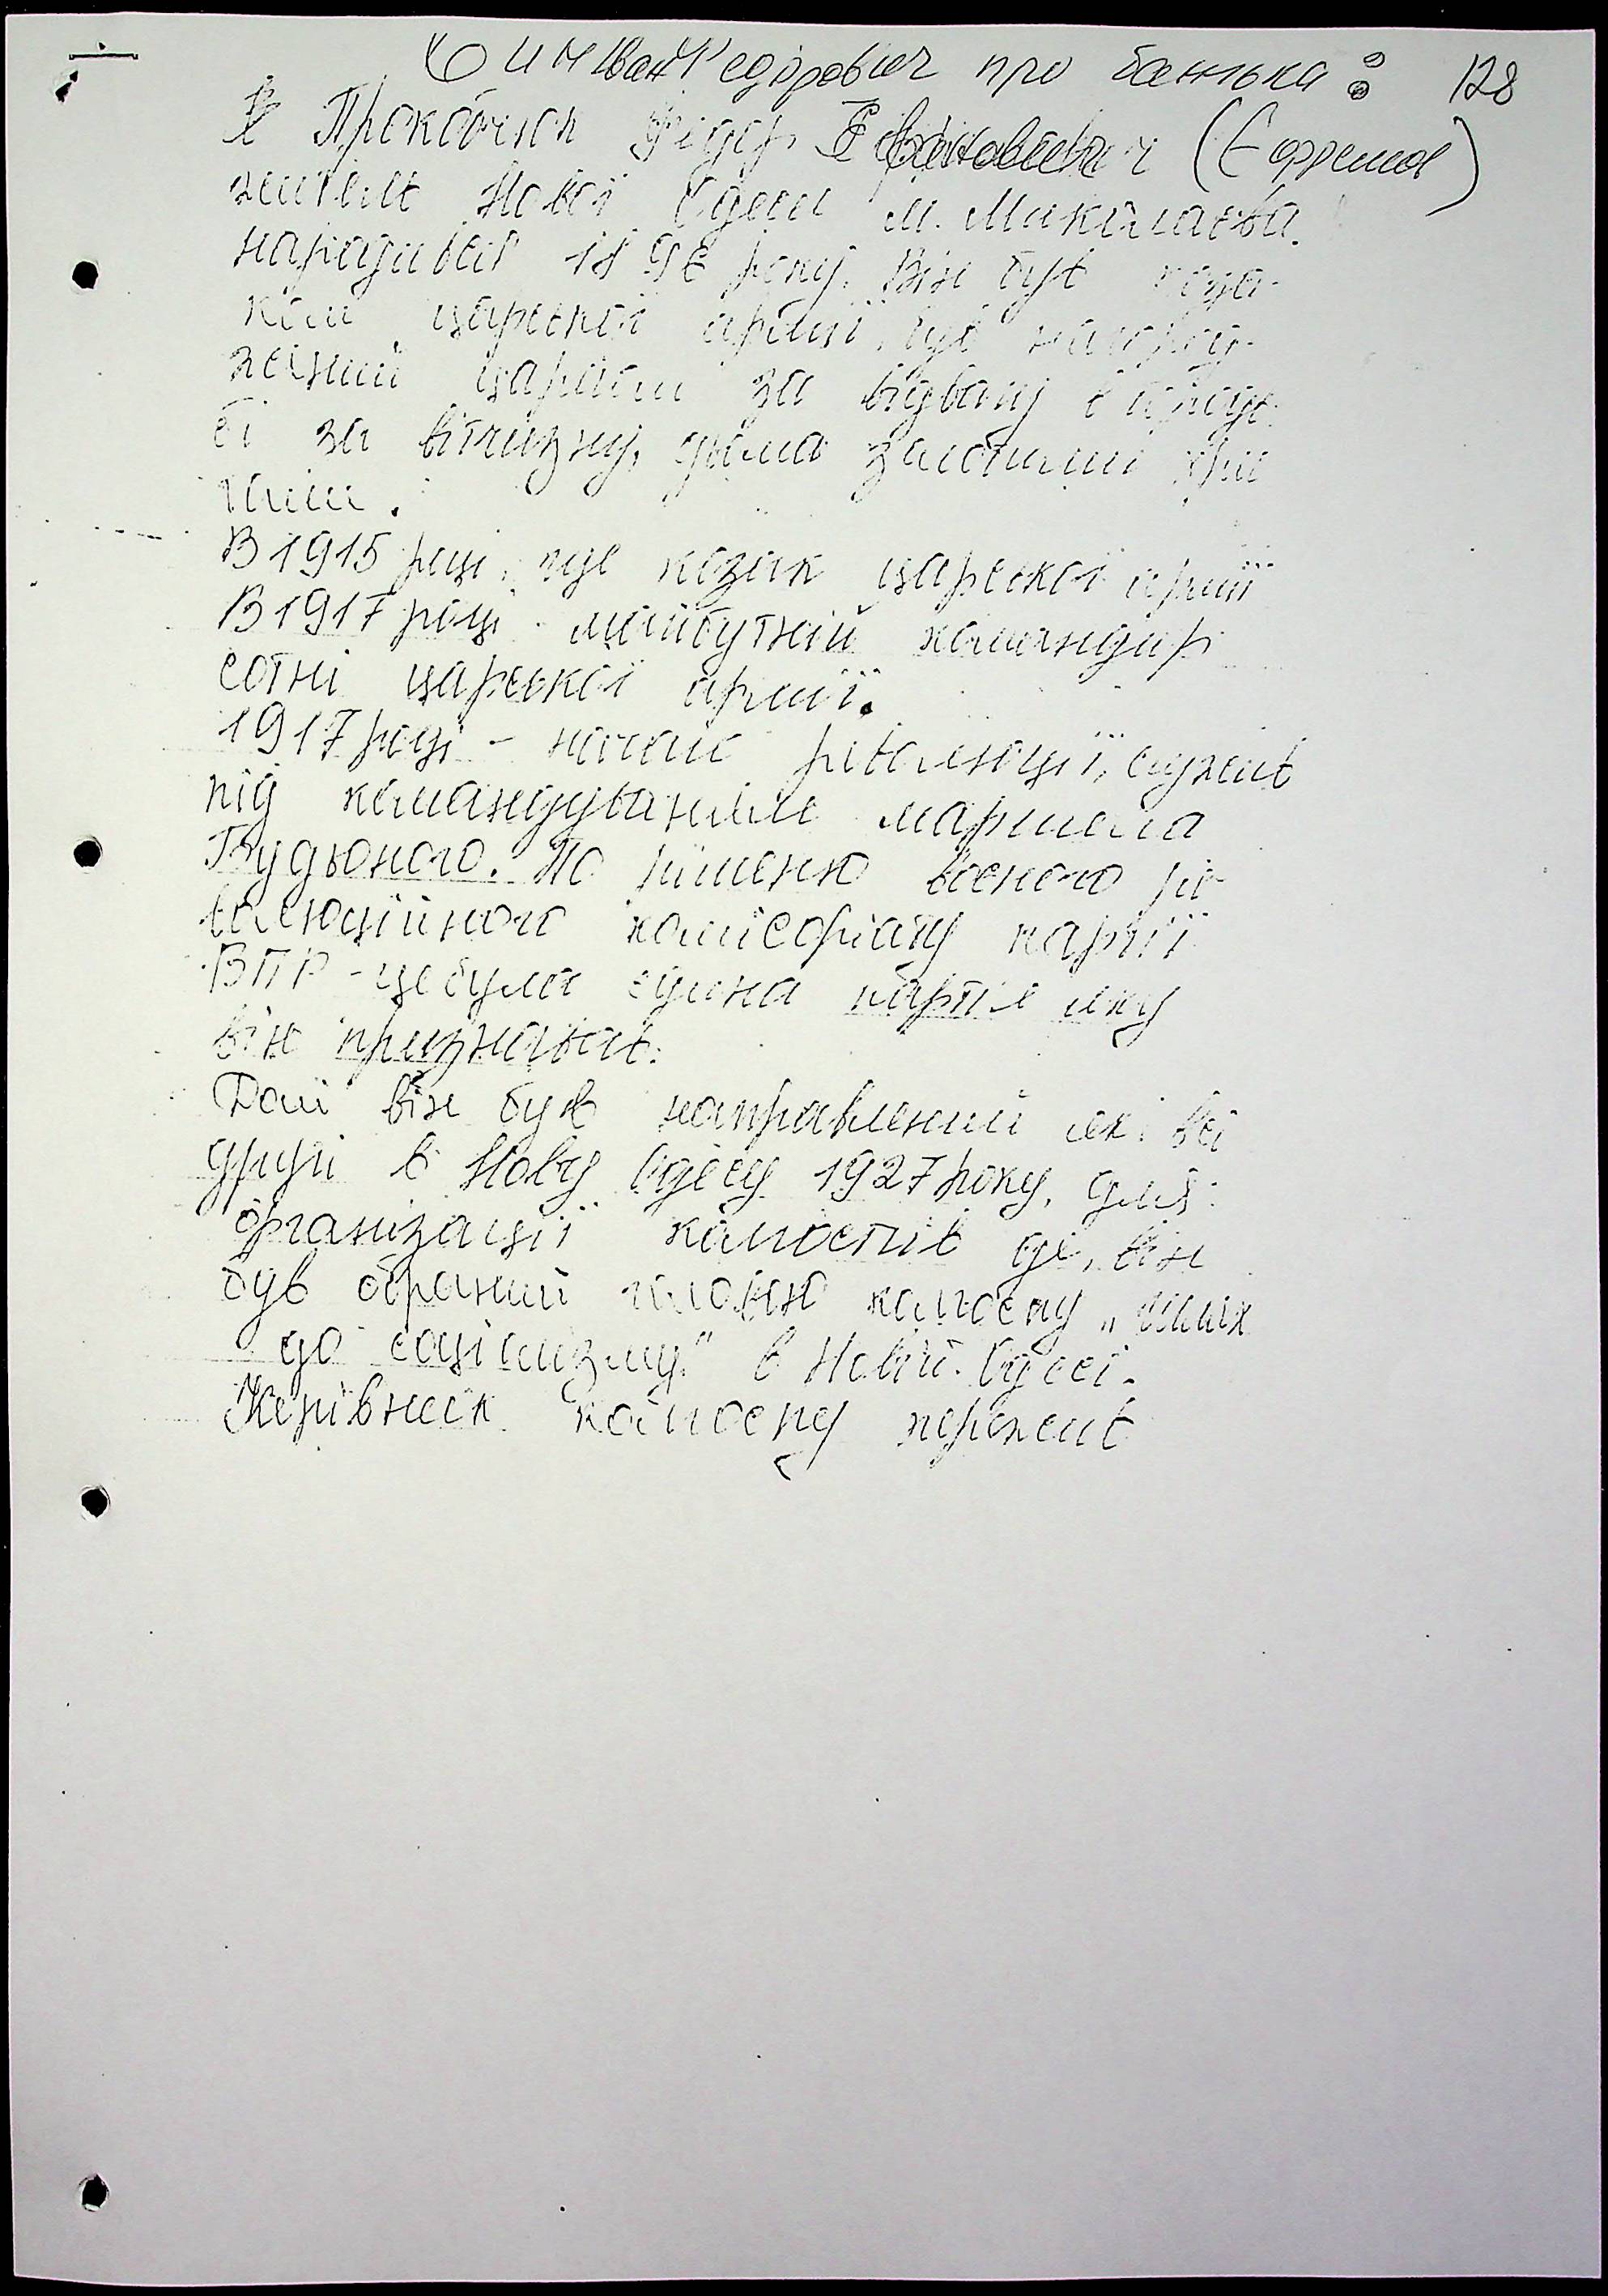 Син Іван Федорович про батька: 128
Я Прокопчук Федір (Єфремов)
житель Нової Одеси м. Миколаєва.
народився 1898 року. Він був коза-
ком царської армії, був нагоро-
жений царем за відвагу в
бі за вітчизну, двома золотими хре
тами.
В 1915 році, ще козак царської армії
В 1917 році - майбутній командир
сотні царської армії.
1917 році - начало революції, служив
під командуванням маршала
Будьоного. По рішеню воєного ре-
волюційного комісаріату партії
ВПР - це була єдина партія яку
він признавав.
Далі він був направлений як і всі
другі в Нову Одесу 1927 року, для
організації колгоспів де, він
був обраний головою колгоспу „Шлях
до соціалізму" в Новій Одесі.
Керівник колгоспу